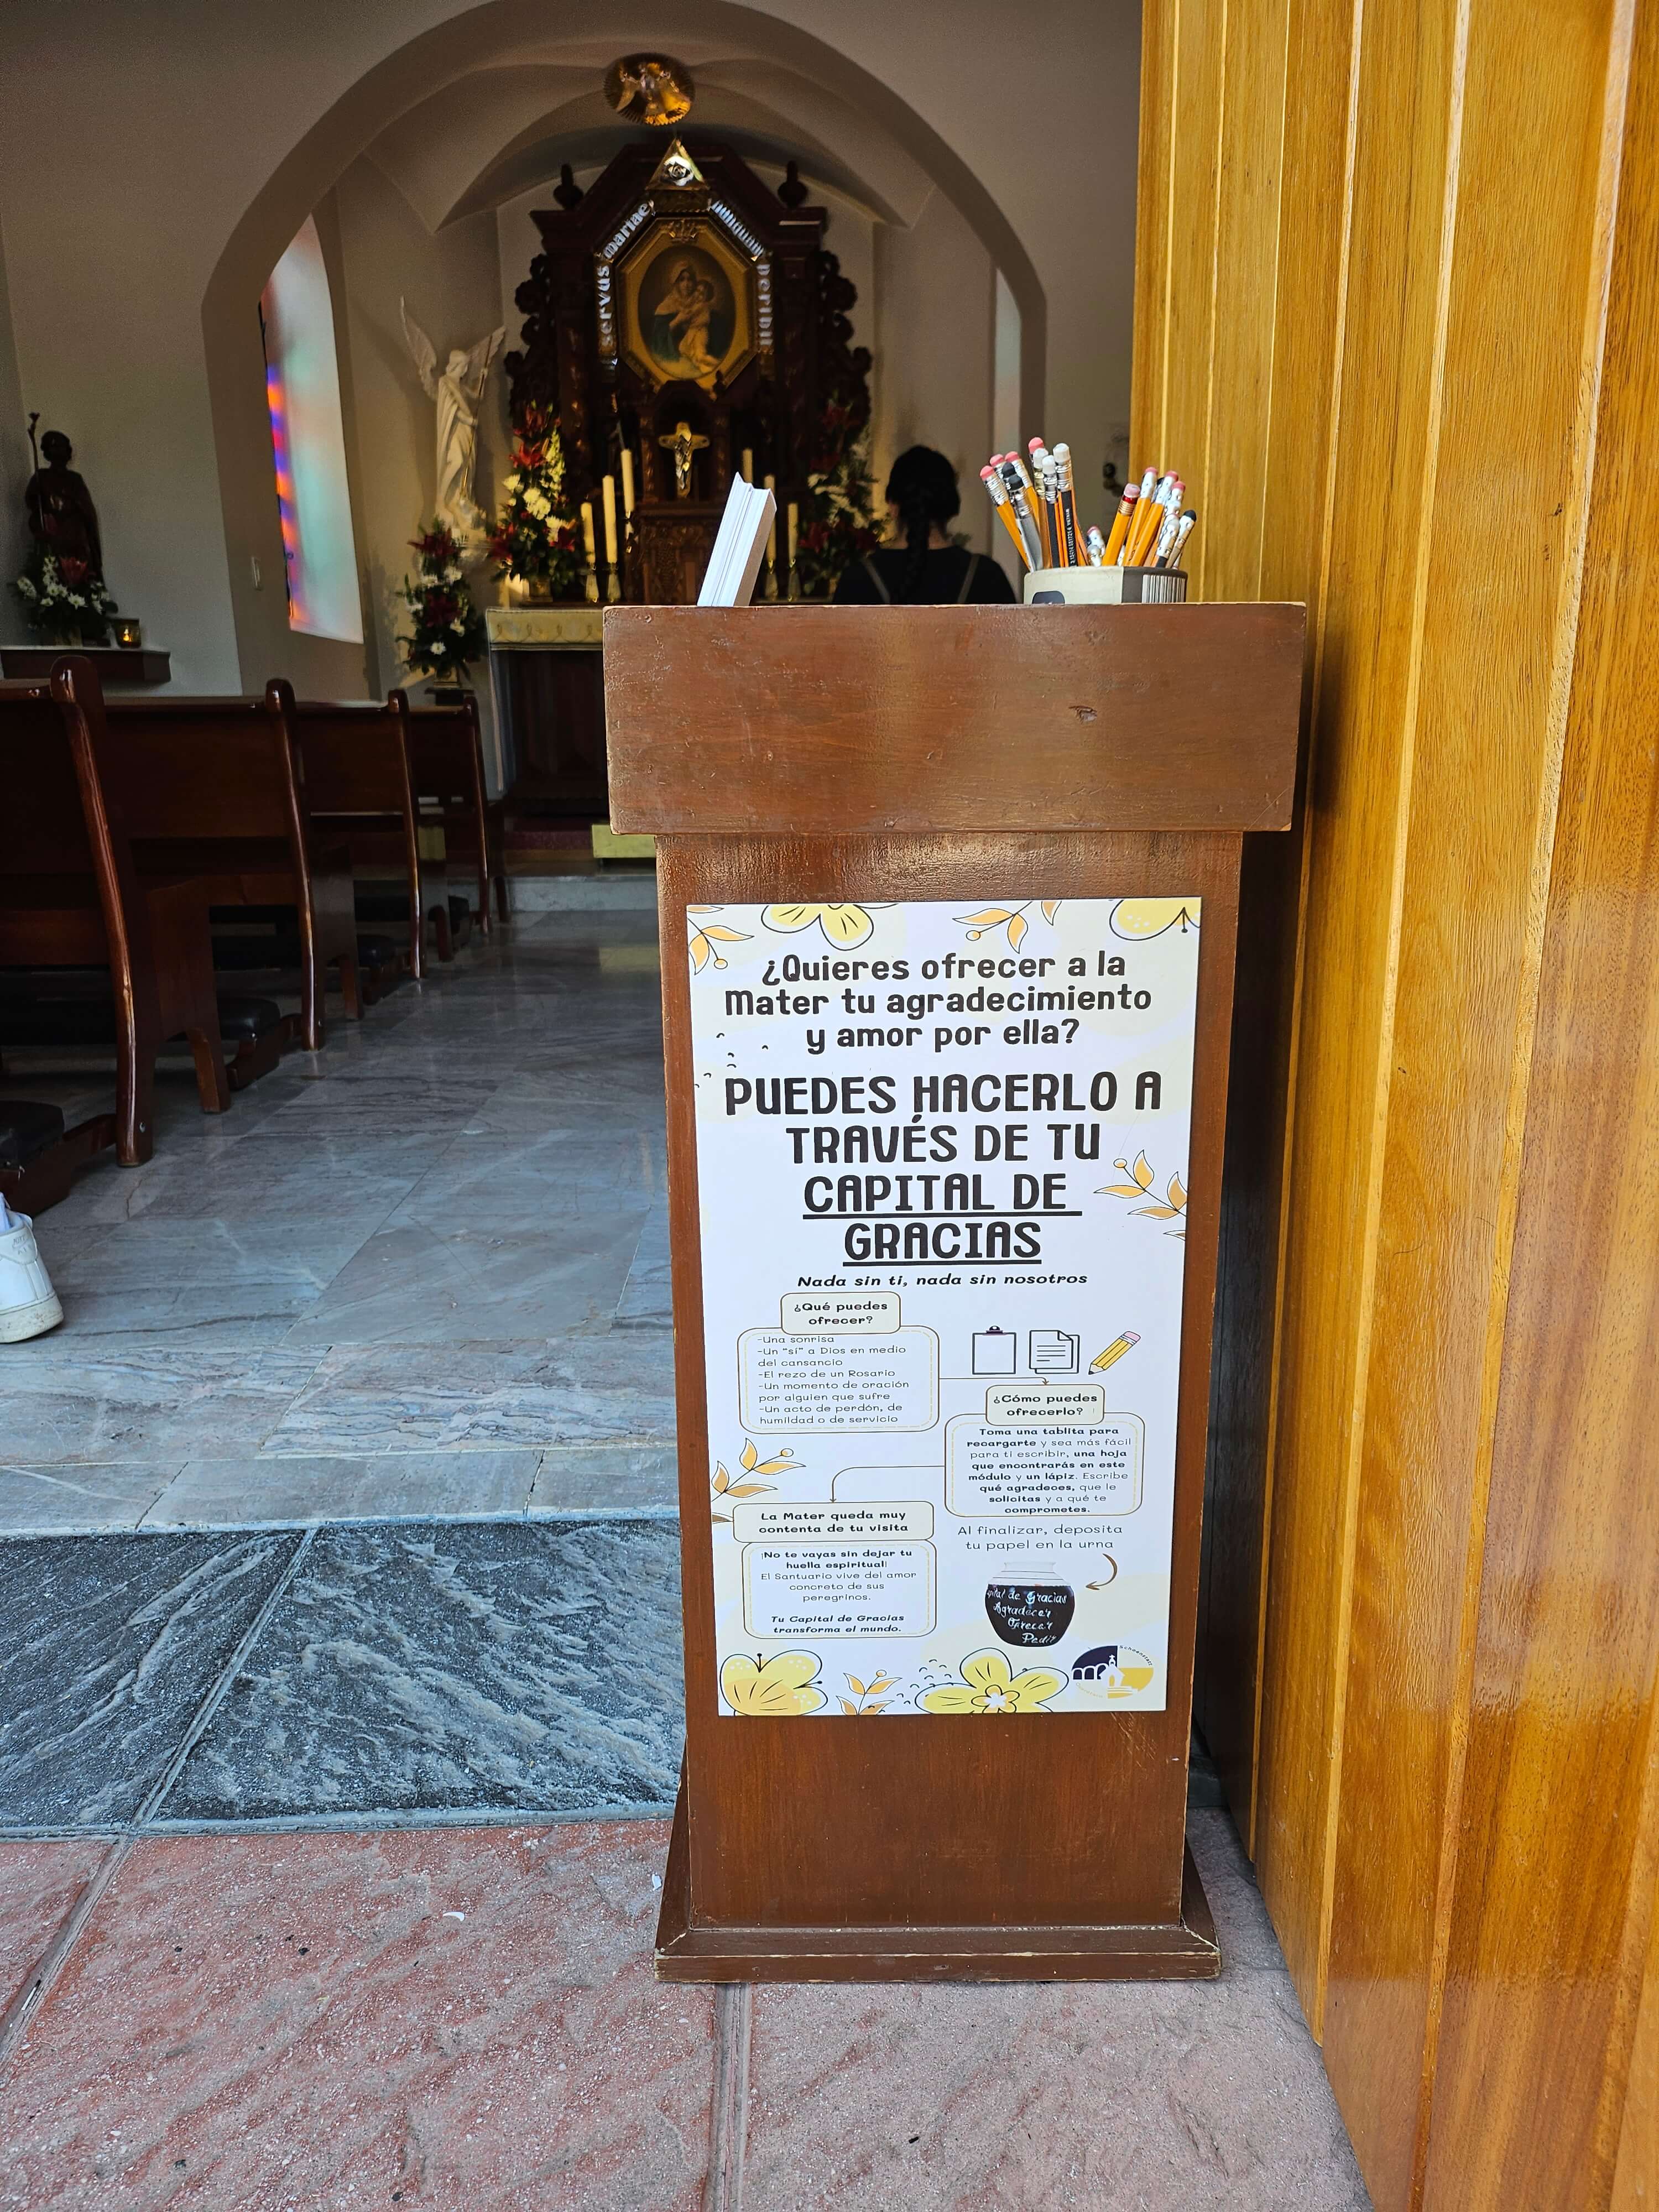 servus mariae nunquam peribit
¿Quieres ofrecer a la
Mater tu agradecimiento
y amor por ella?
PUEDES HACERLO A
TRAVÉS DE TU
CAPITAL DE
GRACIAS
Nada sin ti, nada sin nosotros
¿Qué puedes
ofrecer?
-Una sonrisa
-Un "sí" a Dios en medio
del cansancio
-El rezo de un Rosario
-Un momento de oración
por alguien que sufre
-Un acto de perdón, de
humildad o de servicio
¿Cómo puedes
ofrecerlo?
Toma una tablita para
recargarte y sea más fácil
para ti escribir, una hoja
que encontrarás en este
módulo y un lápiz. Escribe
qué agradeces, que le
solicitas y a qué te
comprometes.
Al finalizar, deposita
tu papel en la urna
La Mater queda muy
contenta de tu visita
¡No te vayas sin dejar tu
huella espiritual!
El Santuario vive del amor
concreto de sus
peregrinos.
Tu Capital de Gracias
transforma el mundo.
pital de Gracias
Agradecer
Ofrecer
Pedir
Schoenstatt